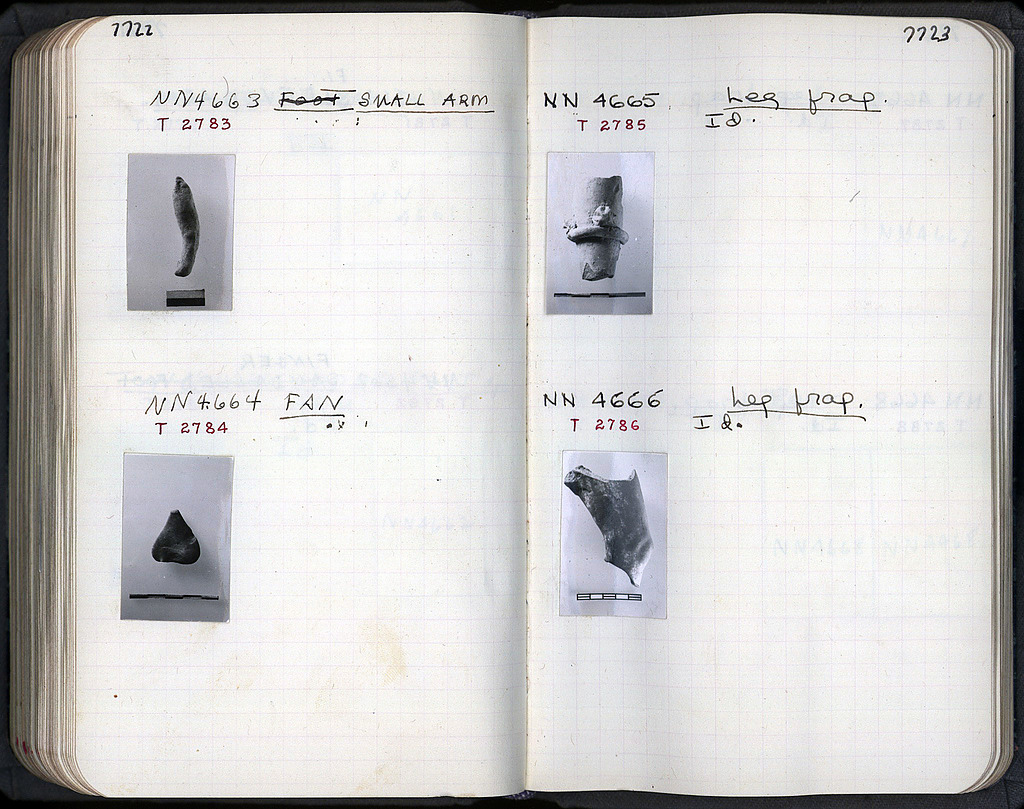 7722
NN4663 Foot SMALL ARM
T 2783
NN4664 FAN
T 2784
7723
NN 4665 Leg frag.
T 2785 Id.
NN 4666 Leg frag.
T 2786 Id.